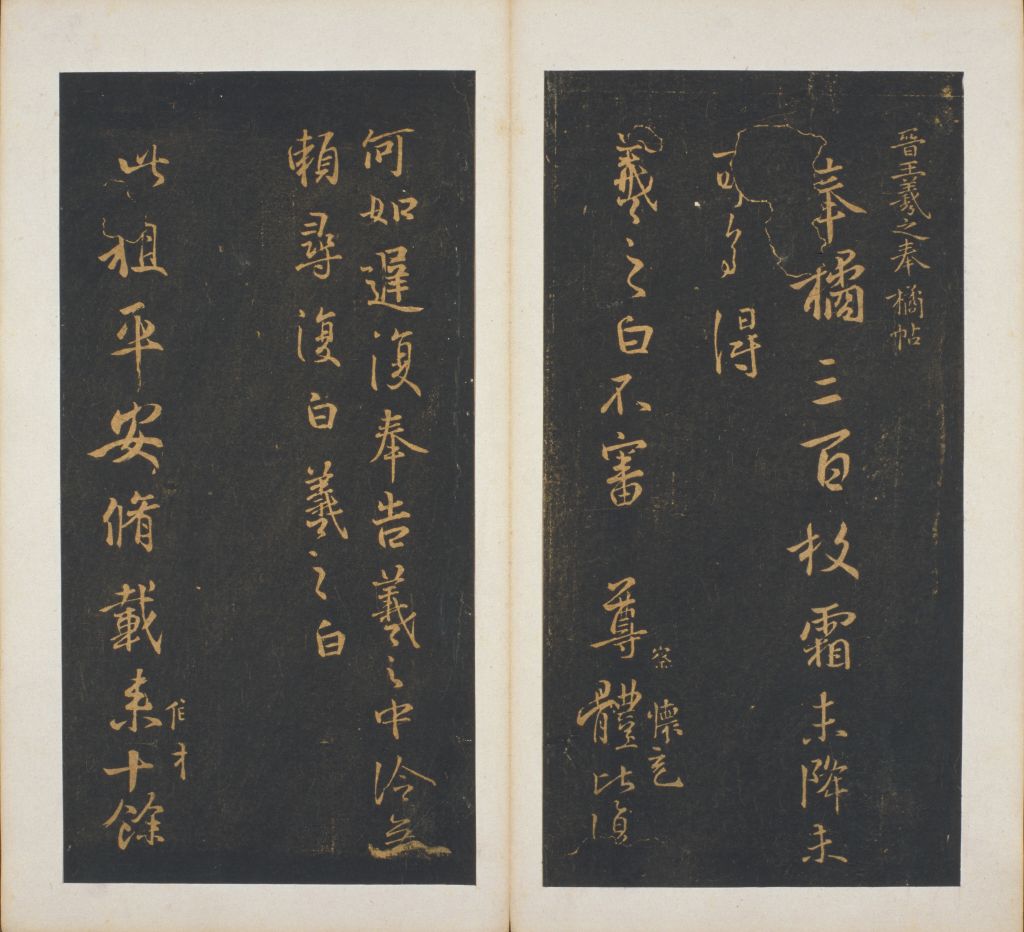 晉王羲之奉橘帖
奉橘三百枚霜未降未
可多得
羲之白不審尊體比復
察懷充
何如遲復奉告羲之中冷無
賴尋復白羲之白
此粗平安脩載來十餘